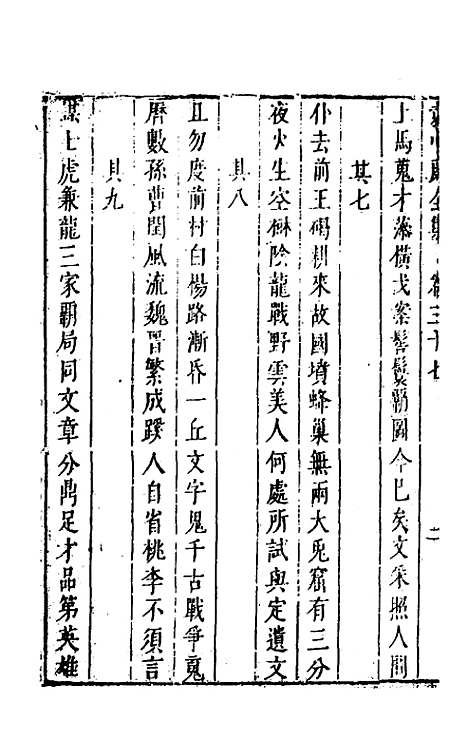 全集 卷三十七
上馬蒐才藻橫戈案髻鬟霸圖今已矣文采照人間
其七
仆去前王碣耕來故國墳蜂巢無兩大兔窟有三分
夜火生空樹陰龍戰野雲美人何處所試與定遺文
其八
且勿度前村白楊路漸昏一丘文字鬼千古戰爭䰟
曆數孫曹閏風流魏晋繁成蹊人自省桃李不須言
其九
謀士虎兼龍三家霸局同文章分鼎足才品第英雄